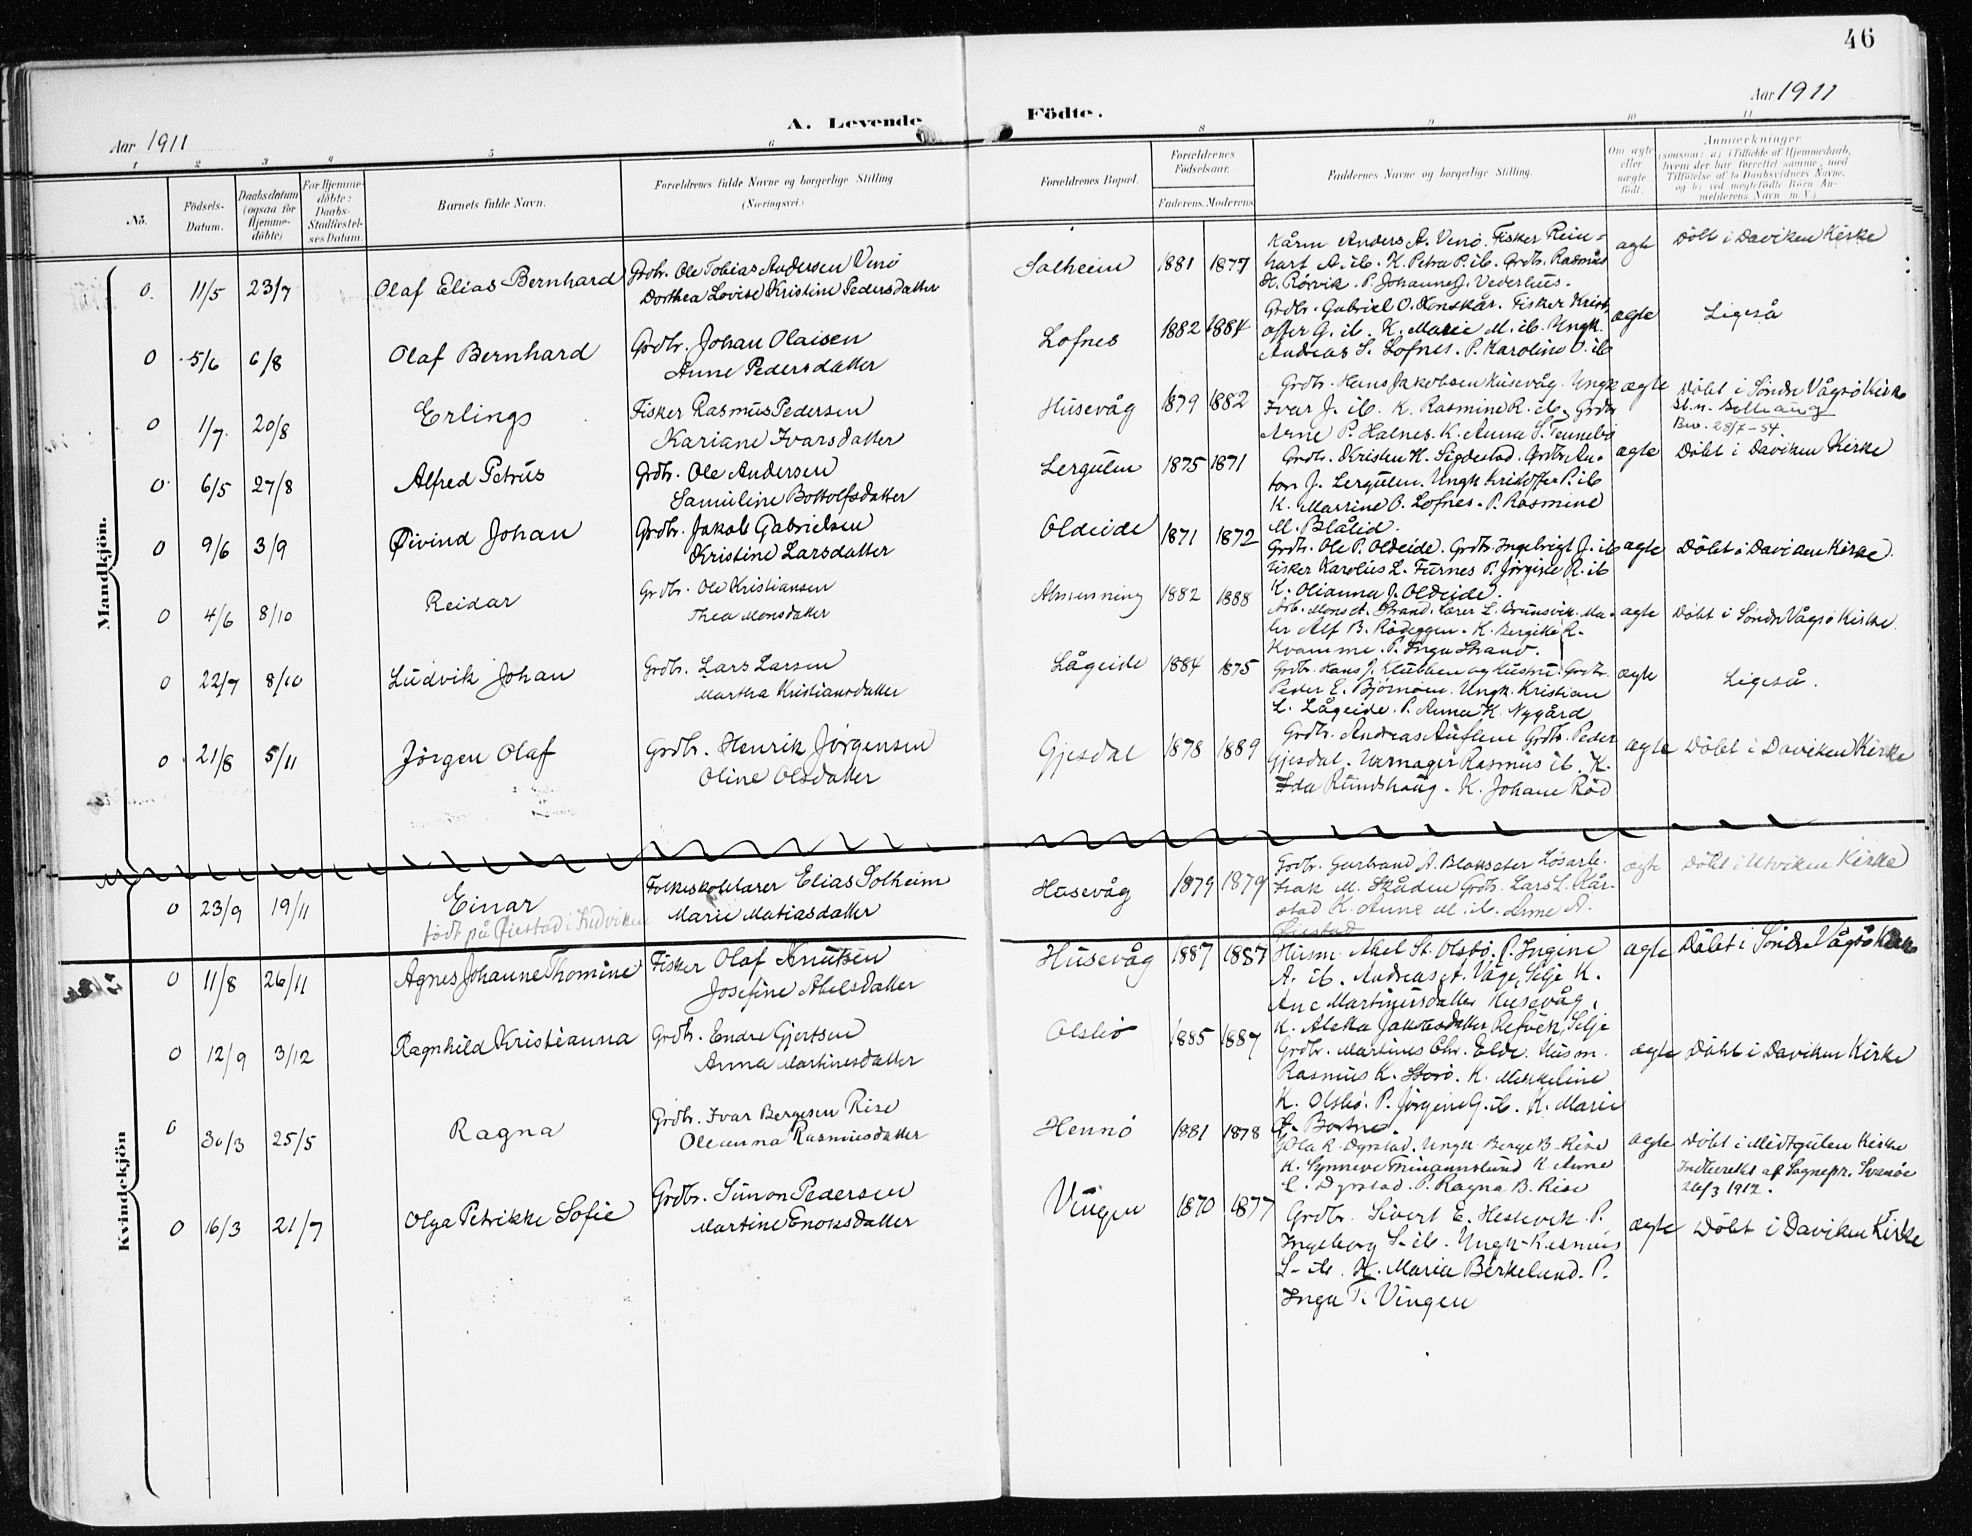 46
Aar 1911
A. Levende Födte.
Aar 1911
1 2 3 4 5 6 8 9 10 11
No.
Födsels-Datum.
Daabsdatum (ogsaa for Hjemme-döbte)
For Hjemme-döbte: Daabs-Stadfæstel-ses Datum.
Barnets fulde Navn.
Forældrenes fulde Navne og borgerlige Stilling (Næringsvei.)
Forældrenes Bopæl.
Forældrenes Födselsaar.
Faderens. Moderens
Faddernes Navne og borgerlige Stilling.
Om ægte eller uægte födt.
Anmerkninger (saasom: a) i Tilfælde af Hjemmedaab, hvem der har forrettet samme, med Tilföielse af to Daabsvidners Navne, og b) ved uægtefödte Börn An-melderens Navn m. V.)
Mandkjön.
0. 11/5 23/7 Olaf Elias Bernhard Grdbr. Ole Tobias Andersen Venö
Dorthea Lovise Kristine Pedersdatter
Salheim 1881 1877
Kårm Anders A. Venö. Fisker Rein-
hart A. ib. K. Petra P. ib. Grdb. Rasmus
H. Rørvik. P. Johanne J. Vederhus.
ægte Döbt i Daviken Kirke
0 5/6 6/8 Olaf Bernhard Grdbr. Johan Olaisen
Anne Pedersdatter
Lofnes 1882 1884
Grdbr. Gabriel O. Fisker Krist-
offer G. ib. K. Marie M. ib. Ungk.
Andreas S. Lofnes. P. Karoline O. ib
ægte Ligeså
0 1/7. 20/8 Erlings Fisker Rasmus Pedersen
Kariane Ivarsdatter
Husevåg 1879 1882
Grdbr. Hans Jakobsen Husevåg. Ungk
Ivar J. ib. K. Rasmine R. ib. Grdbr
Arne P. Halnes. K. Anna S. Tennebö
ægte Döbt i Söndr Vågsö Kirke
Bev. 28/7-54.
0 6/5 27/8 Alfred Petrus Grdbr. Ole Andersen
Samuline Bottolfsdatter
Lergulen 1875 1871
Grdbr. Kristen H. Sigdestad. Grdbr An-
ton J. Lergulen. Ungk Kristoffer P. ib
K. Martine O. Lofnes. P. Rasmine
M. Blålid.
ægte Döbt i Daviken Kirke
0 9/6 3/9 Øivind Johan Grdbr. Jakob Gabrielsen
Kristine Larsdatter
Oldeide 1871 1872
Grdbr. Ole P. Oldeide. Grdbr Ingebrigt J. ib
Fisker Karolus L. Furnes P. Jörgine R. ib
K. Olianna J. Oldeide.
ægte Döbt i Daviken Kirke.
0 4/6 8/10 Reidar Grdbr. Ole Kristiansen
Thea Monsdatter
Almenning 1882 1888
Arb. Mons A. Strand. Lærer L. Brunsvik. Ma-
ler Alf B. Rödeggen. K. Bergitte R.
Kvamme. P. Inga Strand.
ægte Döbt i Söndr Vågsö Kirke.
0 22/7 8/10 Ludvik Johan Grdbr. Lars Larsen
Martha Kristiansdatter
Lågeide 1884 1875
Grdbr. Hans J. Klubben og Hustru. Grdbr.
Peder E. Björnöen. Ungk. Kristian
L. Lågeide. P. Anna K. Nygård
ægte Ligeså.
0 21/8 5/11 Jörgen Olaf Grdbr. Henrik Jörgensen
Oline Olsdatter
Gjesdal 1878 1889
Grdbr. Andreas Auflem Grdb. Peder
Gjesdal. Rasmus ib. K.
Ida Rundshaug. K. Johane Röd
ægte Döbt i Daviken Kirke
0 23/9 19/11 Einar Folkeskolelærer Elias Solheim
födt på Öiestad i Indviken Marie Matiasdatter
Husevåg 1879 1879
Grdbr. Gurbrand A. Blakseter Lösarb.
Isak M. Skåden Grdb. Lars L. Kår-
stad K. Anne M. ib. Anne A.
Öiestad
ægte Döbt i Utviken Kirke
Kvindekjön
0 11/8 26/11 Agnes Johanne Thomine Fisker Olaf Knutsen
Josefine Abelsdatter
Husevåg 1887 1887
Husm. Abel St. Olsbö. P. Ingine
A. ib. Andreas A. Våge, Selje K.
Ane Martinusdatter Husevåg,
K. Aletta Jakobsdatter Refvik, Selje
ægte Döbt i Söndr Vågsö Kirke
0 12/9 3/12 Ragnhild Kristianna Grdb. Endre Gjertsen
Anna Martinesdatter
Olsbö 1885 1887
Grdbr. Martines Chr. Elde. Husm.
Rasmus K. K. Mekkeline
K. Olsbö. P. Jörgine G. ib. K. Marie
G. Bortne
ægte Döbt i Daviken Kirke
0 30/3 25/5 Ragna Grdbr. Ivar Bergesen Rise
Oleanna Rasmusdatter
Hennö 1881 1878
Ola R. Dyrstad. Ungk. Berge B. Rise
K. Synneve K Anne
L. Dyrstad. P. Ragna B. Rise
ægte Döbt i Midtgulen Kirke
Indberettet af Sognepr. Svanöe
26/3 1912.
0 16/3 21/7 Olga Petrikke Sofie Grdbr. Simon Pedersen
Martine Enoksdatter
Vingen 1870 1877
Grdbr. Sivert E. Heskvik. P.
Ingeborg S. ib. Ungk. Rasmus
S. ib. K. Maria Birkelund. P.
Inga T. Vingen
ægte Döbt i Daviken Kirke